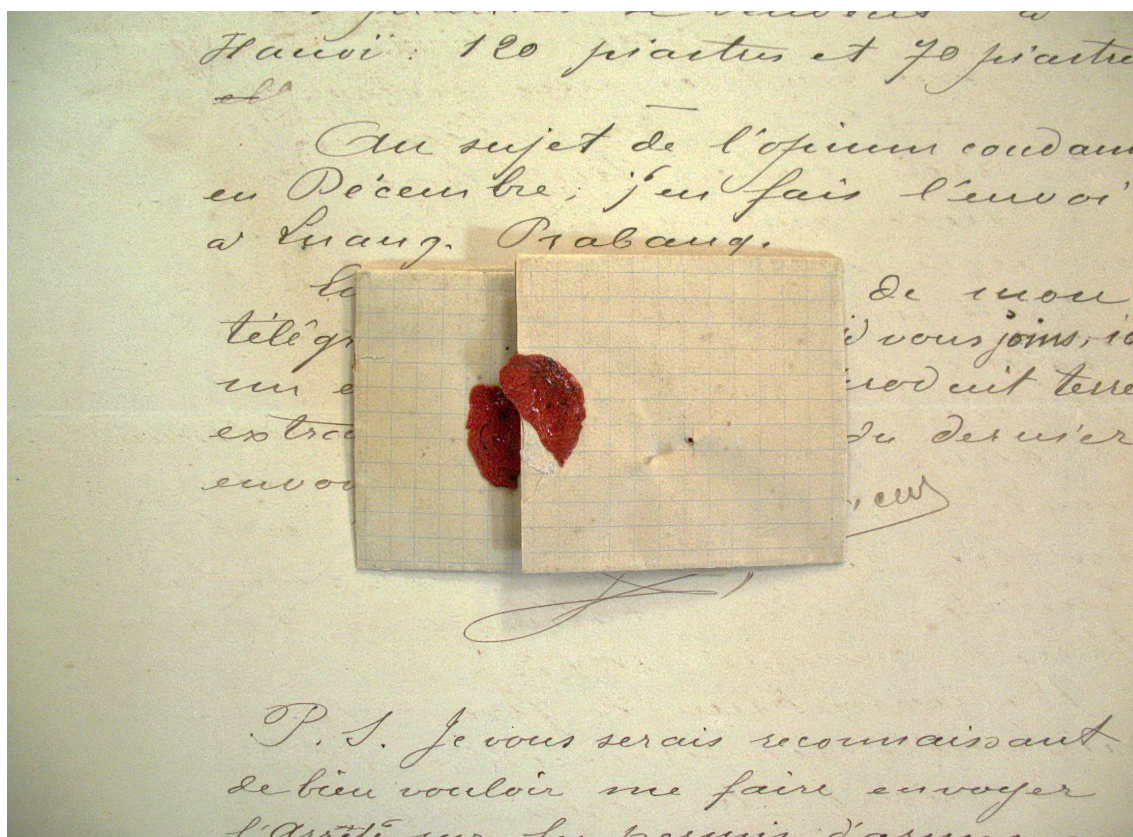 Hanoï : 120 piastres et 70 piastres
Au sujet de l'opium condam
en Décembre, j'en fais l'envoi
à Luang. Prabang.
de mon
télégr vous joins, ic
un e produit terre
extra du dernier
envoi
P. S. Je vous serais reconnaissant
de bien vouloir me faire envoyer
l'Arrêté sur les permis d'armes